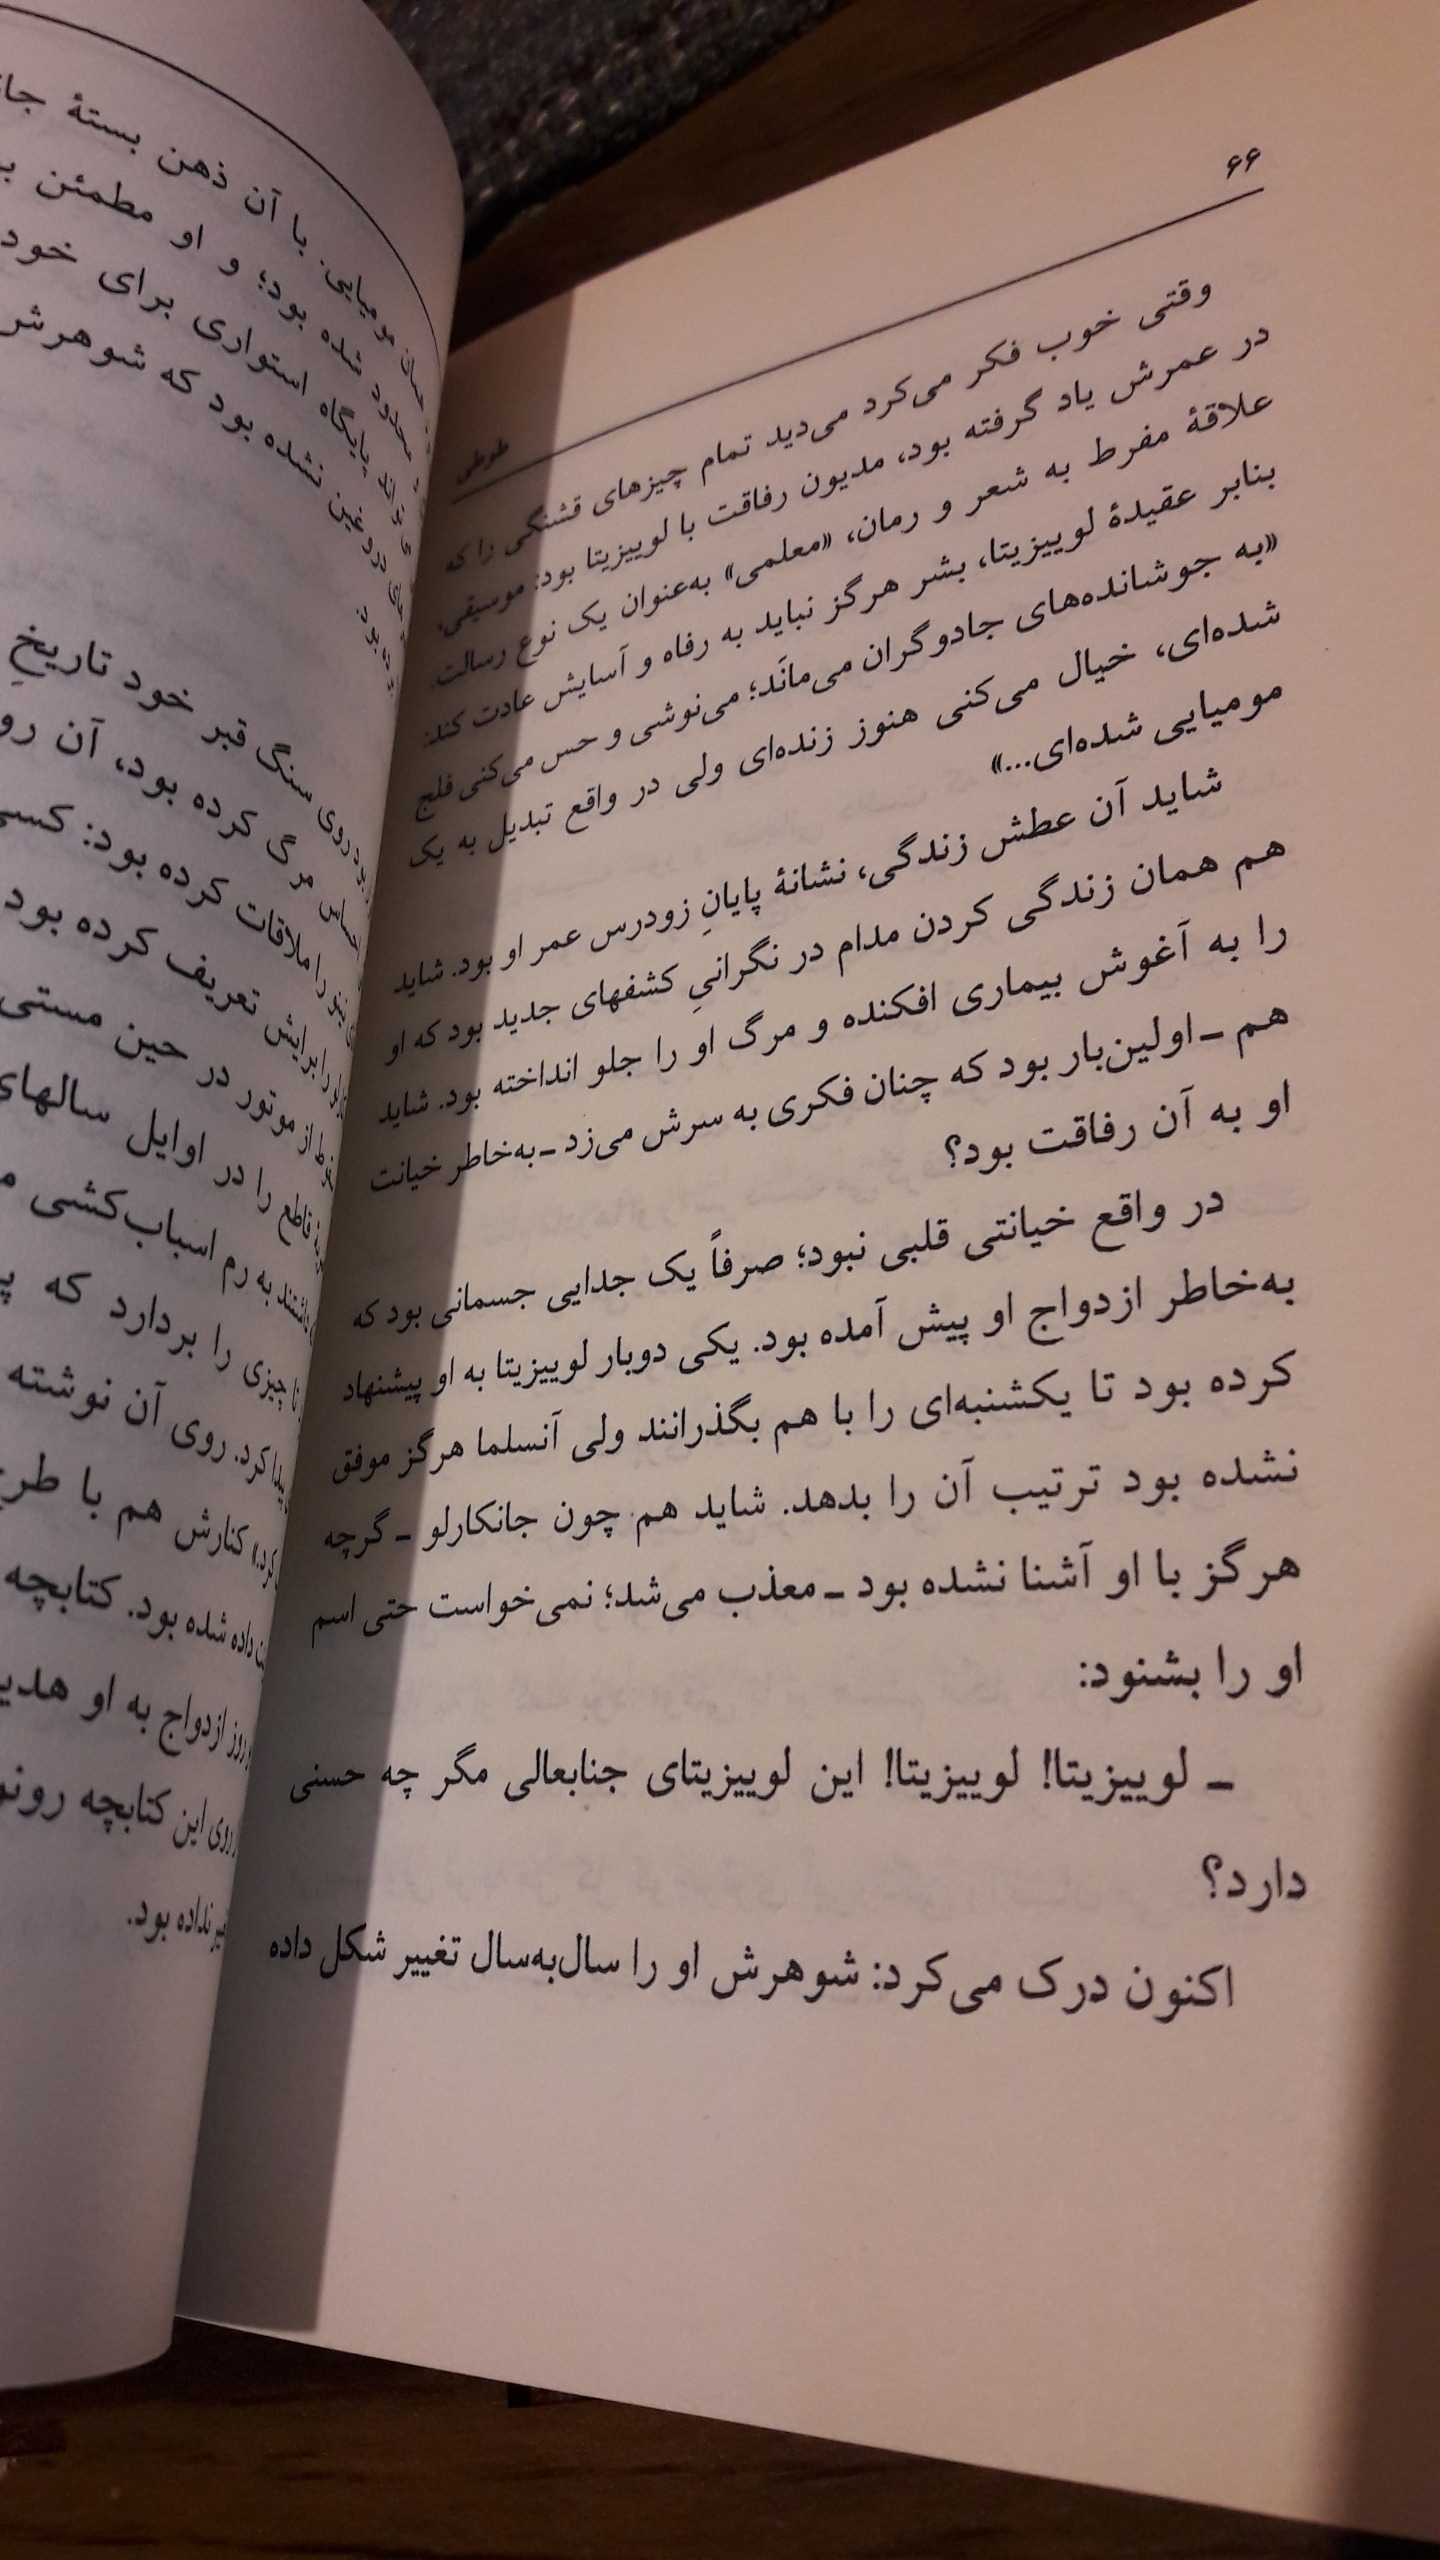 ۶۶
طوطی
وقتی خوب فکر می‌کرد می‌دید تمام چیزهای قشنگی را که
در عمرش یاد گرفته بود، مدیون رفاقت با لوییزیتا بود: موسیقی،
علاقهٔ مفرط به شعر و رمان، «معلمی» به‌عنوان یک نوع رسالت.
بنابر عقیدهٔ لوییزیتا، بشر هرگز نباید به رفاه و آسایش عادت کند:
«به جوشانده‌های جادوگران می‌مانَد؛ می‌نوشی و حس می‌کنی فلج
شده‌ای، خیال می‌کنی هنوز زنده‌ای ولی در واقع تبدیل به یک
مومیایی شده‌ای...»
شاید آن عطش زندگی، نشانهٔ پایانِ زودرس عمر او بود. شاید
هم همان زندگی کردن مدام در نگرانیِ کشفهای جدید بود که او
را به آغوش بیماری افکنده و مرگ او را جلو انداخته بود. شاید
هم ـ اولین‌بار بود که چنان فکری به سرش می‌زد ـ به‌خاطر خیانت
او به آن رفاقت بود؟
در واقع خیانتی قلبی نبود؛ صرفاً یک جدایی جسمانی بود که
به‌خاطر ازدواج او پیش آمده بود. یکی دوبار لوییزیتا به او پیشنهاد
کرده بود تا یکشنبه‌ای را با هم بگذرانند ولی آنسلما هرگز موفق
نشده بود ترتیب آن را بدهد. شاید هم چون جانکارلو ـ گرچه
هرگز با او آشنا نشده بود ـ معذب می‌شد؛ نمی‌خواست حتی اسم
او را بشنود:
ـ لوییزیتا! لوییزیتا! این لوییزیتای جنابعالی مگر چه حسنی
دارد؟
اکنون درک می‌کرد: شوهرش او را سال‌به‌سال تغییر شکل داده
مومیایی. با آن ذهن بستهٔ
محدود شده بود؛ و او مطمئن
پایگاه استواری برای خود
دروغین نشده بود که شوهرش
بود.
روی سنگ قبر خود تاریخِ
احساس مرگ کرده بود، آن
را ملاقات کرده بود: کسی
را برایش تعریف کرده بود
از موتور در حین مستی
قاطع را در اوایل سالهای
داشتند به رم اسباب‌کشی
تا چیزی را بردارد که
پیدا کرد. روی آن نوشته
کنارش هم با
داده شده بود. کتابچه
روز ازدواج به او
روی این کتابچه
نداده بود.